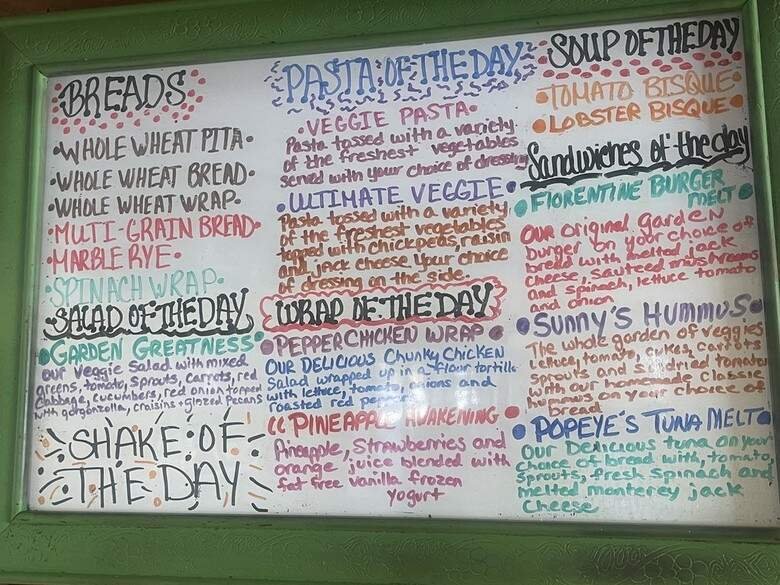 BREADS
•WHOLE WHEAT PITA•
•WHOLE WHEAT BREAD•
•WHOLE WHEAT WRAP•
•MUTI-GRAIN BREAD•
•MARBLE RYE•
•SPINACH WRAP•
SALAD OF THE DAY
•GARDEN GREATNESS•
our veggie Salad with mixed
greens, tomato, sprouts, carrots, red
cabbage, cucumbers, red onion topped
with gorgonzolla, craisins + glazed pecans
SHAKE OF
THE DAY
PASTA OF THE DAY
•VEGGIE PASTA•
Pasta tossed with a variety
of the freshest vegetables
served with your choice of dressing
•ULTIMATE VEGGIE•
Pasta tossed with a variety
of the freshest vegetables
topped with chickpeas, raisin
and jack cheese. Your choice
of dressing on the side.
WRAP OF THE DAY
•PEPPER CHICKEN WRAP•
OUR DELICIOUS Chunky Chicken
Salad wrapped up in a flour tortilla
with lettuce, tomato, onions and
roasted red peppers
"PINEAPPLE AWAKENING•
Pineapple, Strawberries and
orange juice blended with
fat free vanilla frozen
yogurt
SOUP OF THE DAY
•TOMATO BISQUE•
•LOBSTER BISQUE•
Sandwiches of the day
•FLORENTINE BURGER
MELT•
OUR original garden
burger on your choice of
bread with melted jack
cheese, sauteed mushrooms
and spinach, lettuce tomato
and onion
•SUNNY'S HUMMUS•
The whole garden of veggies
lettuce, tomato, cukes, carrots
sprouts and sundried tomatoes
with our homemade classic
hummus on your choice of
bread
•POPEYE'S TUNA MELT•
Our Delicious tuna on your
choice of bread with, tomato,
sprouts, fresh spinach and
melted monterey jack
cheese